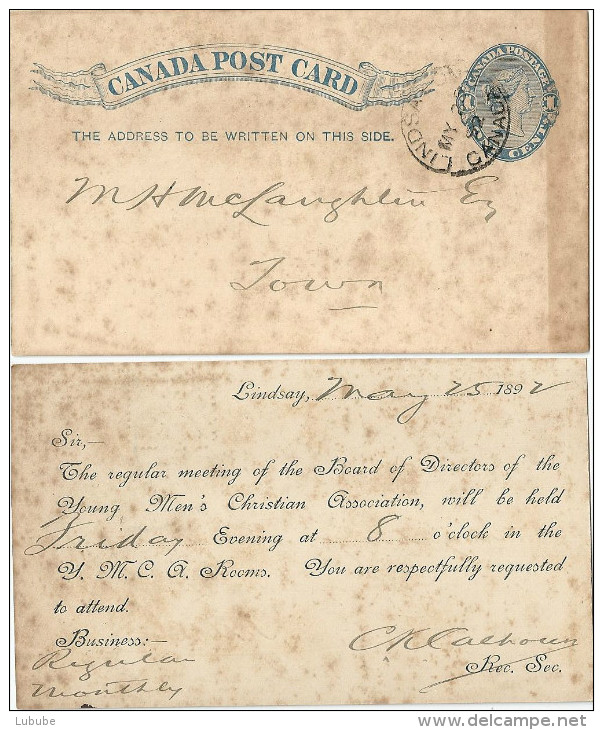 CANADA POST CARD
THE ADDRESS TO BE WRITTEN ON THIS SIDE.
CANADA POSTAGE
ONE CENT
LINDSAY
MY
92
CANADA
M H McLaughlin Esq
Town
Lindsay, May 25 1892
Sir,—
The regular meeting of the Board of Directors of the
Young Men's Christian Association, will be held
Friday Evening at 8 o'clock in the
Y. M. C. A. Rooms. You are respectfully requested
to attend.
Business:—
Regular
Monthly
C K Calhoun
Rec. Sec.
Lubube
delcampe.net